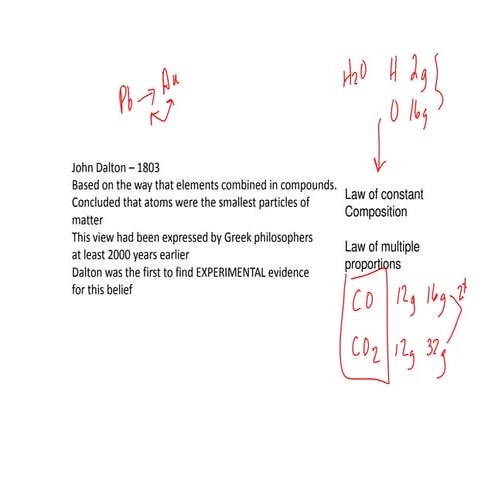 Pb → Au
H2O H 2g
O 16g
John Dalton – 1803
Based on the way that elements combined in compounds.
Concluded that atoms were the smallest particles of
matter
This view had been expressed by Greek philosophers
at least 2000 years earlier
Dalton was the first to find EXPERIMENTAL evidence
for this belief
Law of constant
Composition
Law of multiple
proportions
CO 12g 16g 2x
CO2 12g 32g